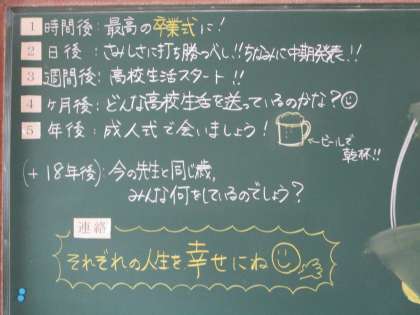 1 時間後：最高の卒業式に！
2 日後：さみしさに打ち勝つべし!!ちなみに中期発表!!
3 週間後：高校生活スタート!!
4 ヶ月後：どんな高校生活を送っているのかな？
5 年後：成人式で会いましょう！
←ビールで
乾杯!!
(+18年後)：今の先生と同じ歳,
みんな何をしているのでしょう？
連絡
それぞれの人生を幸せにね